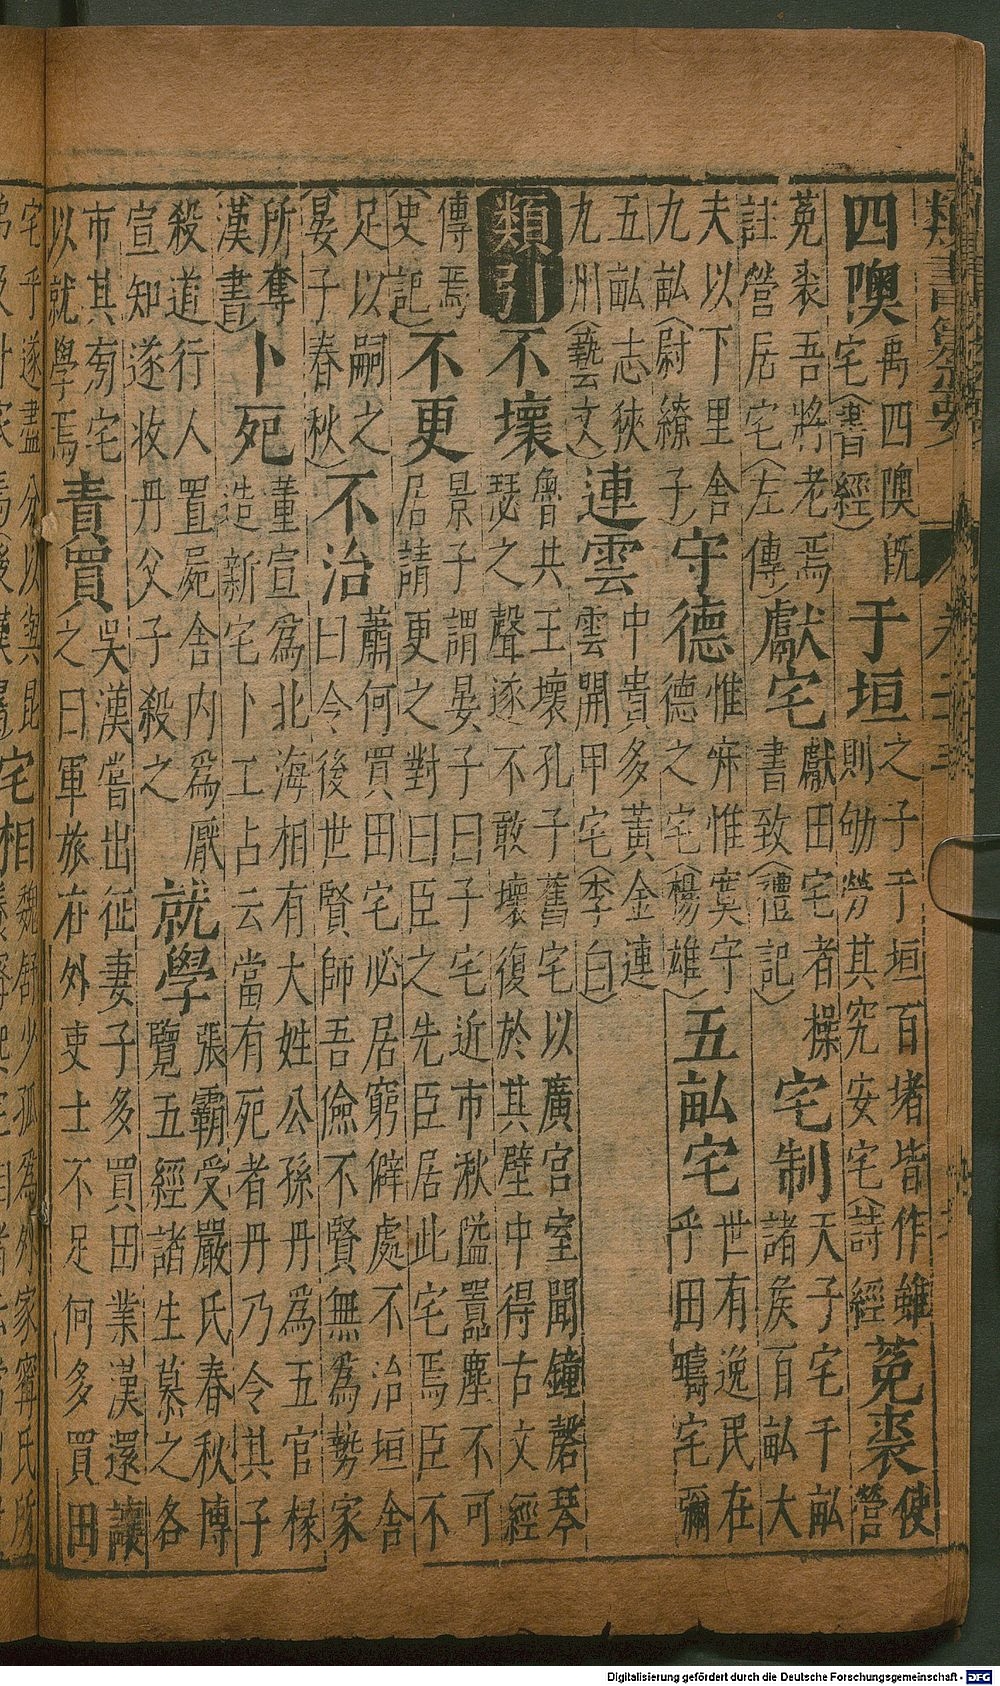 類書纂要 卷二十三
四隩 禹四隩既
宅(書經)
于垣 之子于垣百堵皆作雖
則劬勞其究安宅(詩經
菟裘 使
營
菟裘吾將老焉
註營居宅(左傳)
獻宅 獻田宅者操
書致(禮記)
宅制 天子宅千畝
諸侯百畝大
夫以下里舍
九畝(尉繚子)
守德 惟㝛惟寞守
德之宅(楊雄)
五畝宅 世有逸民在
乎田疇宅彌
五畝志狹
九州(藝文)
連雲 中貴多黃金連
雲開甲宅(李白)
類引
不壞 魯共王壞孔子舊宅以廣宮室聞鐘磬琴
瑟之聲遂不敢壞復於其壁中得古文經
傳焉
(史記)
不更 景子謂晏子曰子宅近市湫隘囂塵不可
居請更之對曰臣之先臣居此宅焉臣不
足以嗣之
(晏子春秋)
不治 蕭何買田宅必居窮僻處不治垣舍
曰令後世賢師吾儉不賢無為勢家
所奪
(漢書)
卜死 董宣爲北海相有大姓公孫丹爲五官椽
造新宅卜工占云當有死者丹乃令其子
殺道行人置屍舍內爲厭
宣知遂收丹父子殺之
就學 張霸受嚴氏春秋博
覽五經諸生慕之各
市其旁宅
以就學焉
責買 吳漢嘗出征妻子多買田業漢還讓
之曰軍旅在外吏士不足何多買田
宅乎遂盡分以與昆
宅相 魏舒少孤爲外家甯氏所
Digitalisierung gefördert durch die Deutsche Forschungsgemeinschaft - DFG